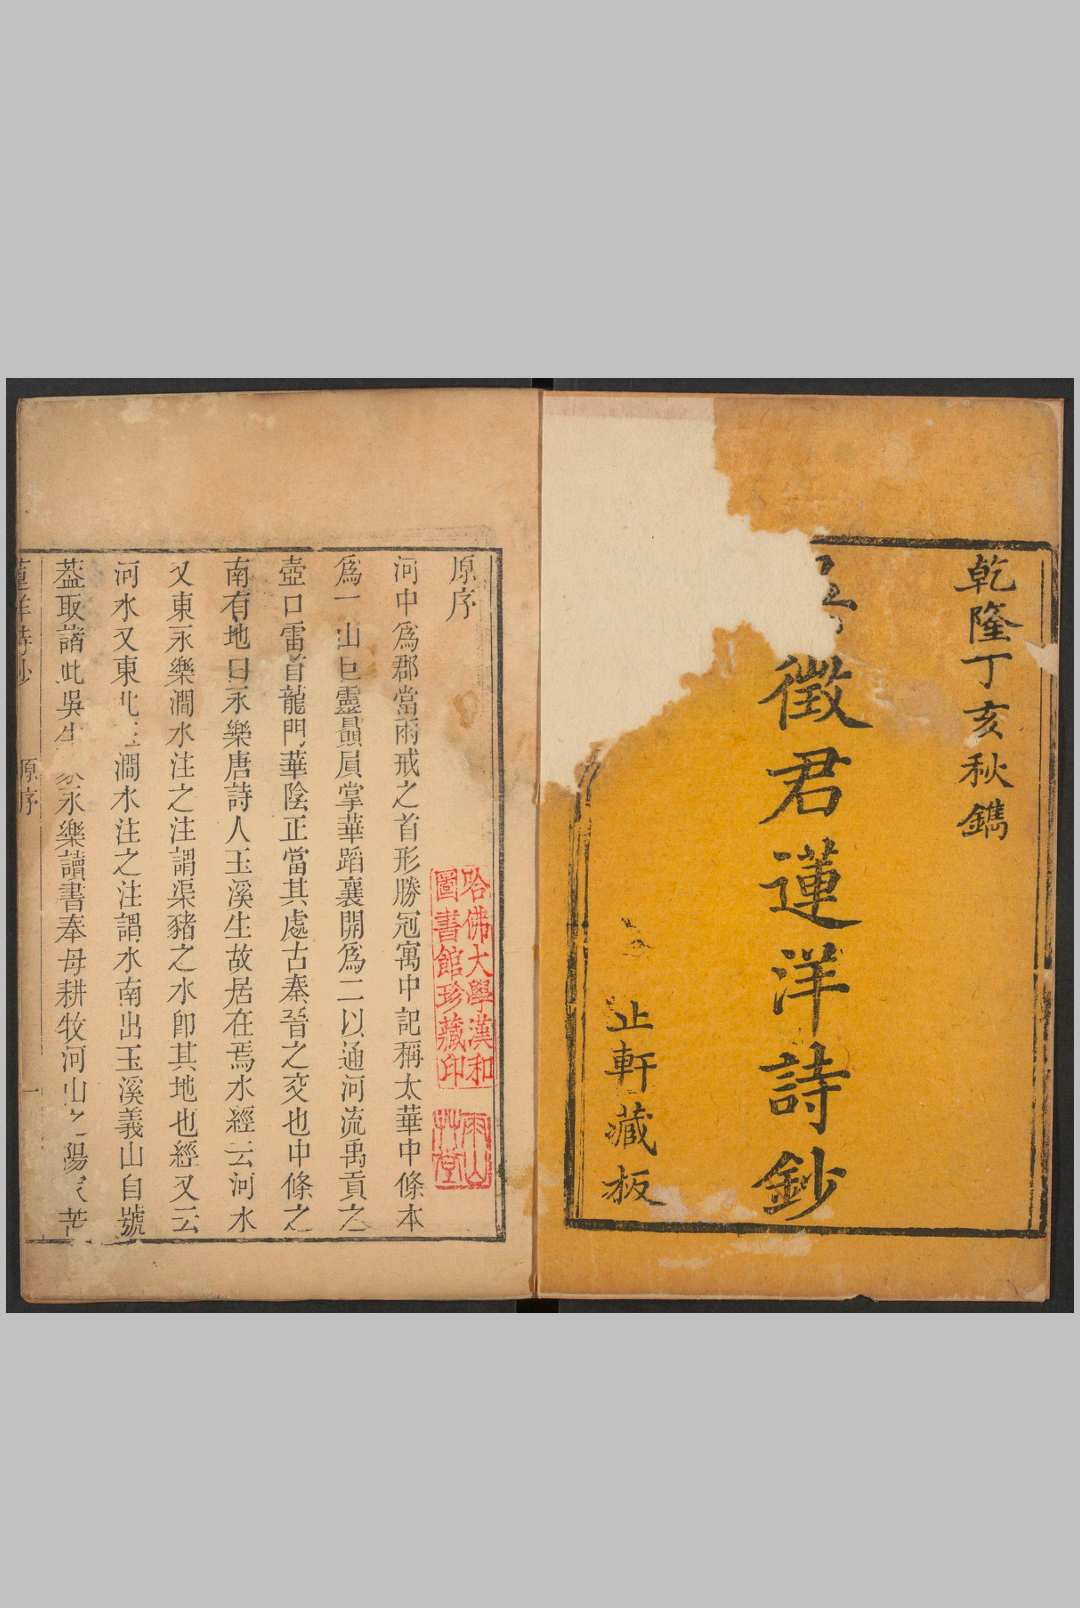 乾隆丁亥秋鐫
徵君蓮洋詩鈔
止軒藏板
原序
哈佛大學漢和
圖書館珍藏印
雨山
艸堂
河中爲郡當兩戒之首形勝冠寓中記稱太華中條本
爲一山巨靈贔屓掌華蹈襄開爲二以通河流禹貢之
壺口雷首龍門華陰正當其處古秦晉之交也中條之
南有地曰永樂唐詩人玉溪生故居在焉水經云河水
又東永樂澗水注之注謂渠豬之水卽其地也經又云
河水又東北玉澗水注之注謂水南出玉溪義山自號
葢取諸此吳生家永樂讀書奉母耕牧河山之陽
原序
一